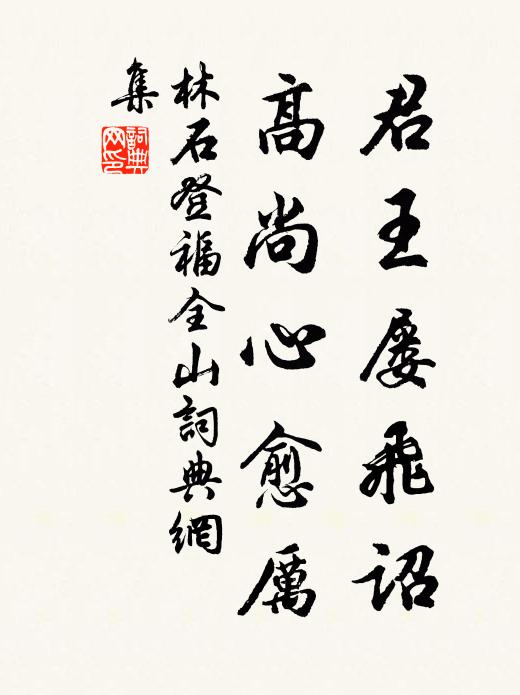 君王屡飛詔
高尚心愈厲
林石登福全山詞典網
集
詞典
网印